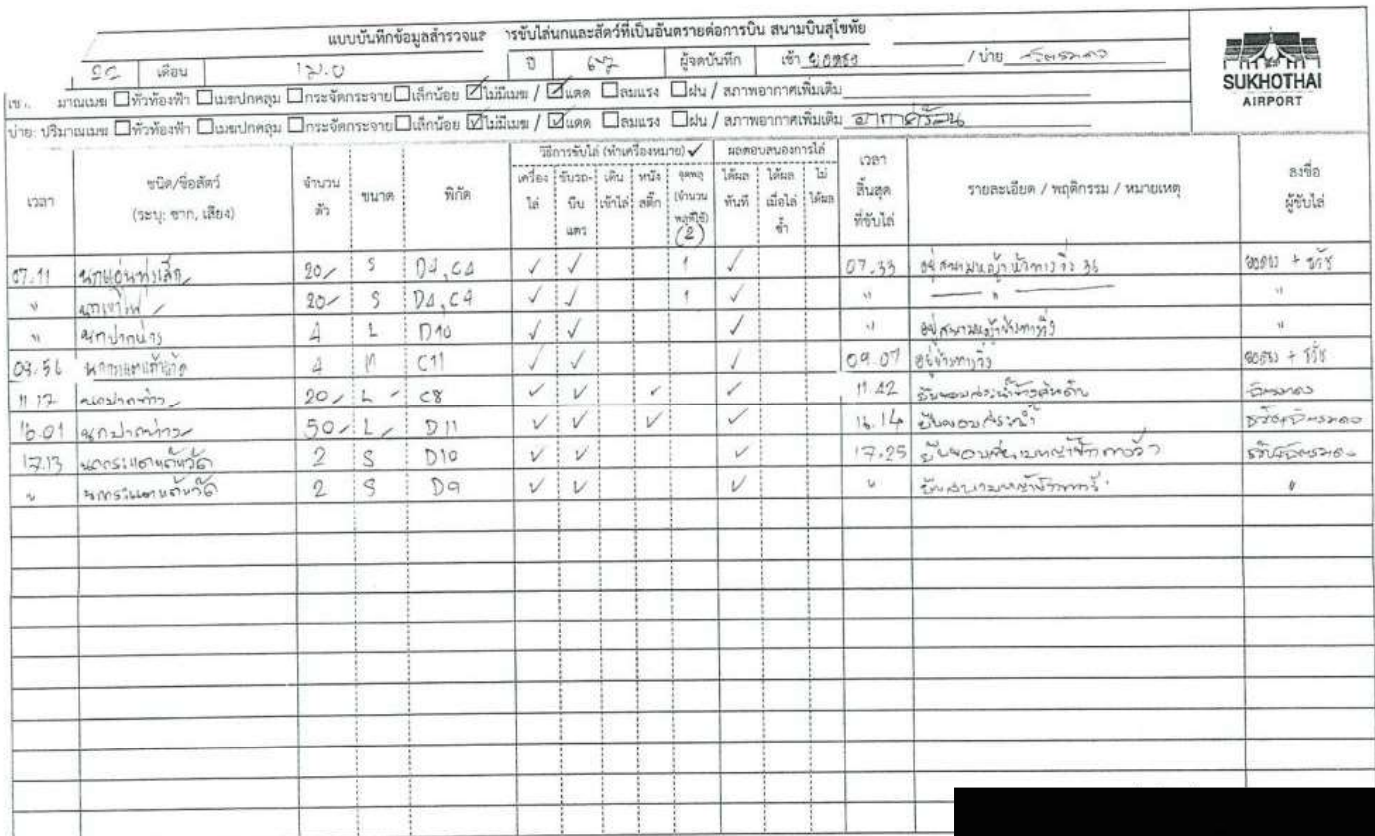 แบบบันทึกข้อมูลสำรวจแล รขับไล่นกและสัตว์ที่เป็นอันตรายต่อการบิน สนามบินสุโขทัย
เดือน เม.ย ปี 67 ผู้จดบันทึก เช้า / บ่าย
SUKHOTHAI
AIRPORT
มาณเมฆ ทั่วท้องฟ้า เมฆปกคลุม กระจัดกระจาย เล็กน้อย ไม่มีเมฆ / แดด ลมแรง ฝน / สภาพอากาศเพิ่มเติม
บ่าย: ปริมาณเมฆ ทั่วท้องฟ้า เมฆปกคลุม กระจัดกระจาย เล็กน้อย ไม่มีเมฆ / แดด ลมแรง ฝน / สภาพอากาศเพิ่มเติม อากาศร้อน
เวลา
ชนิด/ชื่อสัตว์
(ระบุ: ซาก, เสียง)
จำนวน
ตัว
ขนาด
พิกัด
วิธีการขับไล่ (ทำเครื่องหมาย) ✓
เครื่อง
ไล่
ขับรถ-
บีบ
แตร
เดิน
เข้าไล่
หนัง
สติ๊ก
จุดพลุ
(จำนวน
พลุที่ใช้)
(2)
ผลตอบสนองการไล่
ได้ผล
ทันที
ได้ผล
เมื่อไล่
ซ้ำ
ไม่
ได้ผล
เวลา
สิ้นสุด
ที่ขับไล่
รายละเอียด / พฤติกรรม / หมายเหตุ
ลงชื่อ
ผู้ขับไล่
07.11 นกแอ่นทุ่งเล็ก 20 S D4, C4 ✓ ✓ 1 ✓ 07.33 อยู่สนามหญ้าหัวทางวิ่ง 36
" 20 S D4, C4 ✓ ✓ 1 ✓ " "  "
" นกปากห่าง 4 L D10 ✓ ✓ ✓ " อยู่สนามหญ้าข้างทางวิ่ง "
นกกระแตแต้แว้ด 4 M C11 ✓ ✓ ✓ 09.07 อยู่ข้างทางวิ่ง
11.17 นกปากห่าง 20 L C8 ✓ ✓ ✓ ✓ 11.42
16.01 นกปากห่าง 50 L D11 ✓ ✓ ✓ ✓ 16.14 ยืนขอบสระน้ำ
17.13 นกกระแตแต้แว้ด 2 S D10 ✓ ✓ ✓ 17.25
" นกกระแตแต้แว้ด 2 S D9 ✓ ✓ ✓ " "